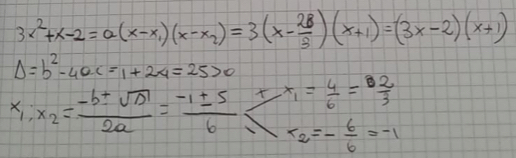 3x²+x-2=a(x-x₁)(x-x₂)=3(x-2/3)(x+1)=(3x-2)(x+1)
Δ=b²-4ac=1+24=25>0
x₁;x₂=(-b±√Δ)/2a=(-1±5)/6 x₁=4/6=2/3
x₂=-6/6=-1